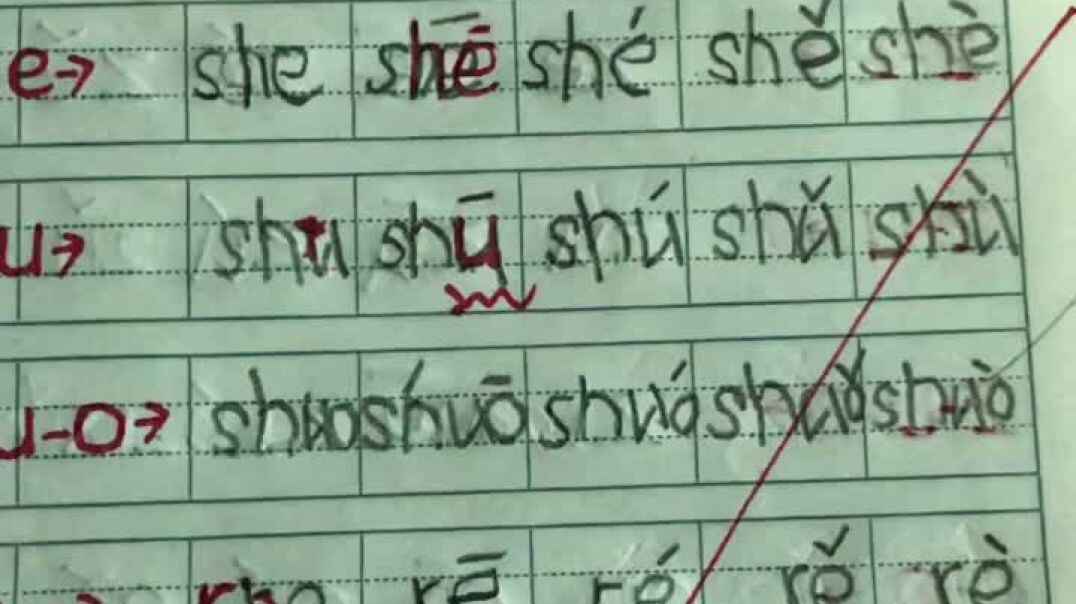 e→ she shē shé shě shè
u→ shu shū shú shǔ shù
u-o→ shuo shuō shuó shuǒ shuò
rē ré rě rè